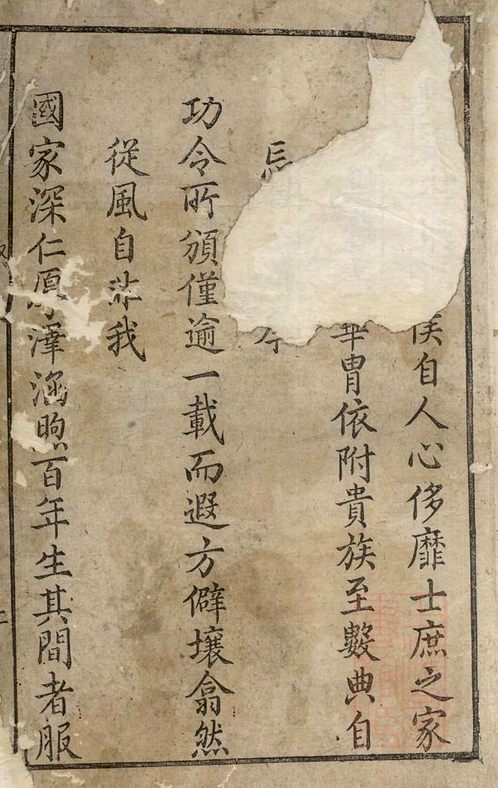 自人心侈靡士庶之家
華冑依附貴族至數典自
功令所頒僅逾一載而遐方僻壤翕然
從風自非我
國家深仁厚澤涵煦百年生其間者服